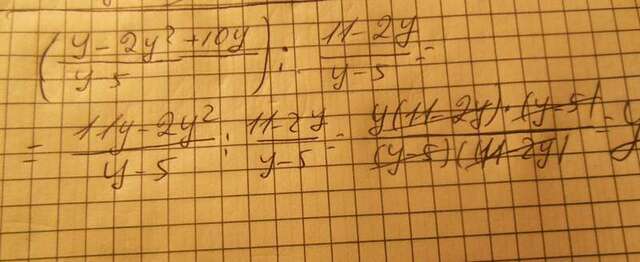 (y - 2y² + 10y / y - 5) : 11 - 2y / y - 5 =
= 11y - 2y² / y - 5 : 11 - 2y / y - 5 = y(11 - 2y) · (y - 5) / (y - 5)(11 - 2y) = y